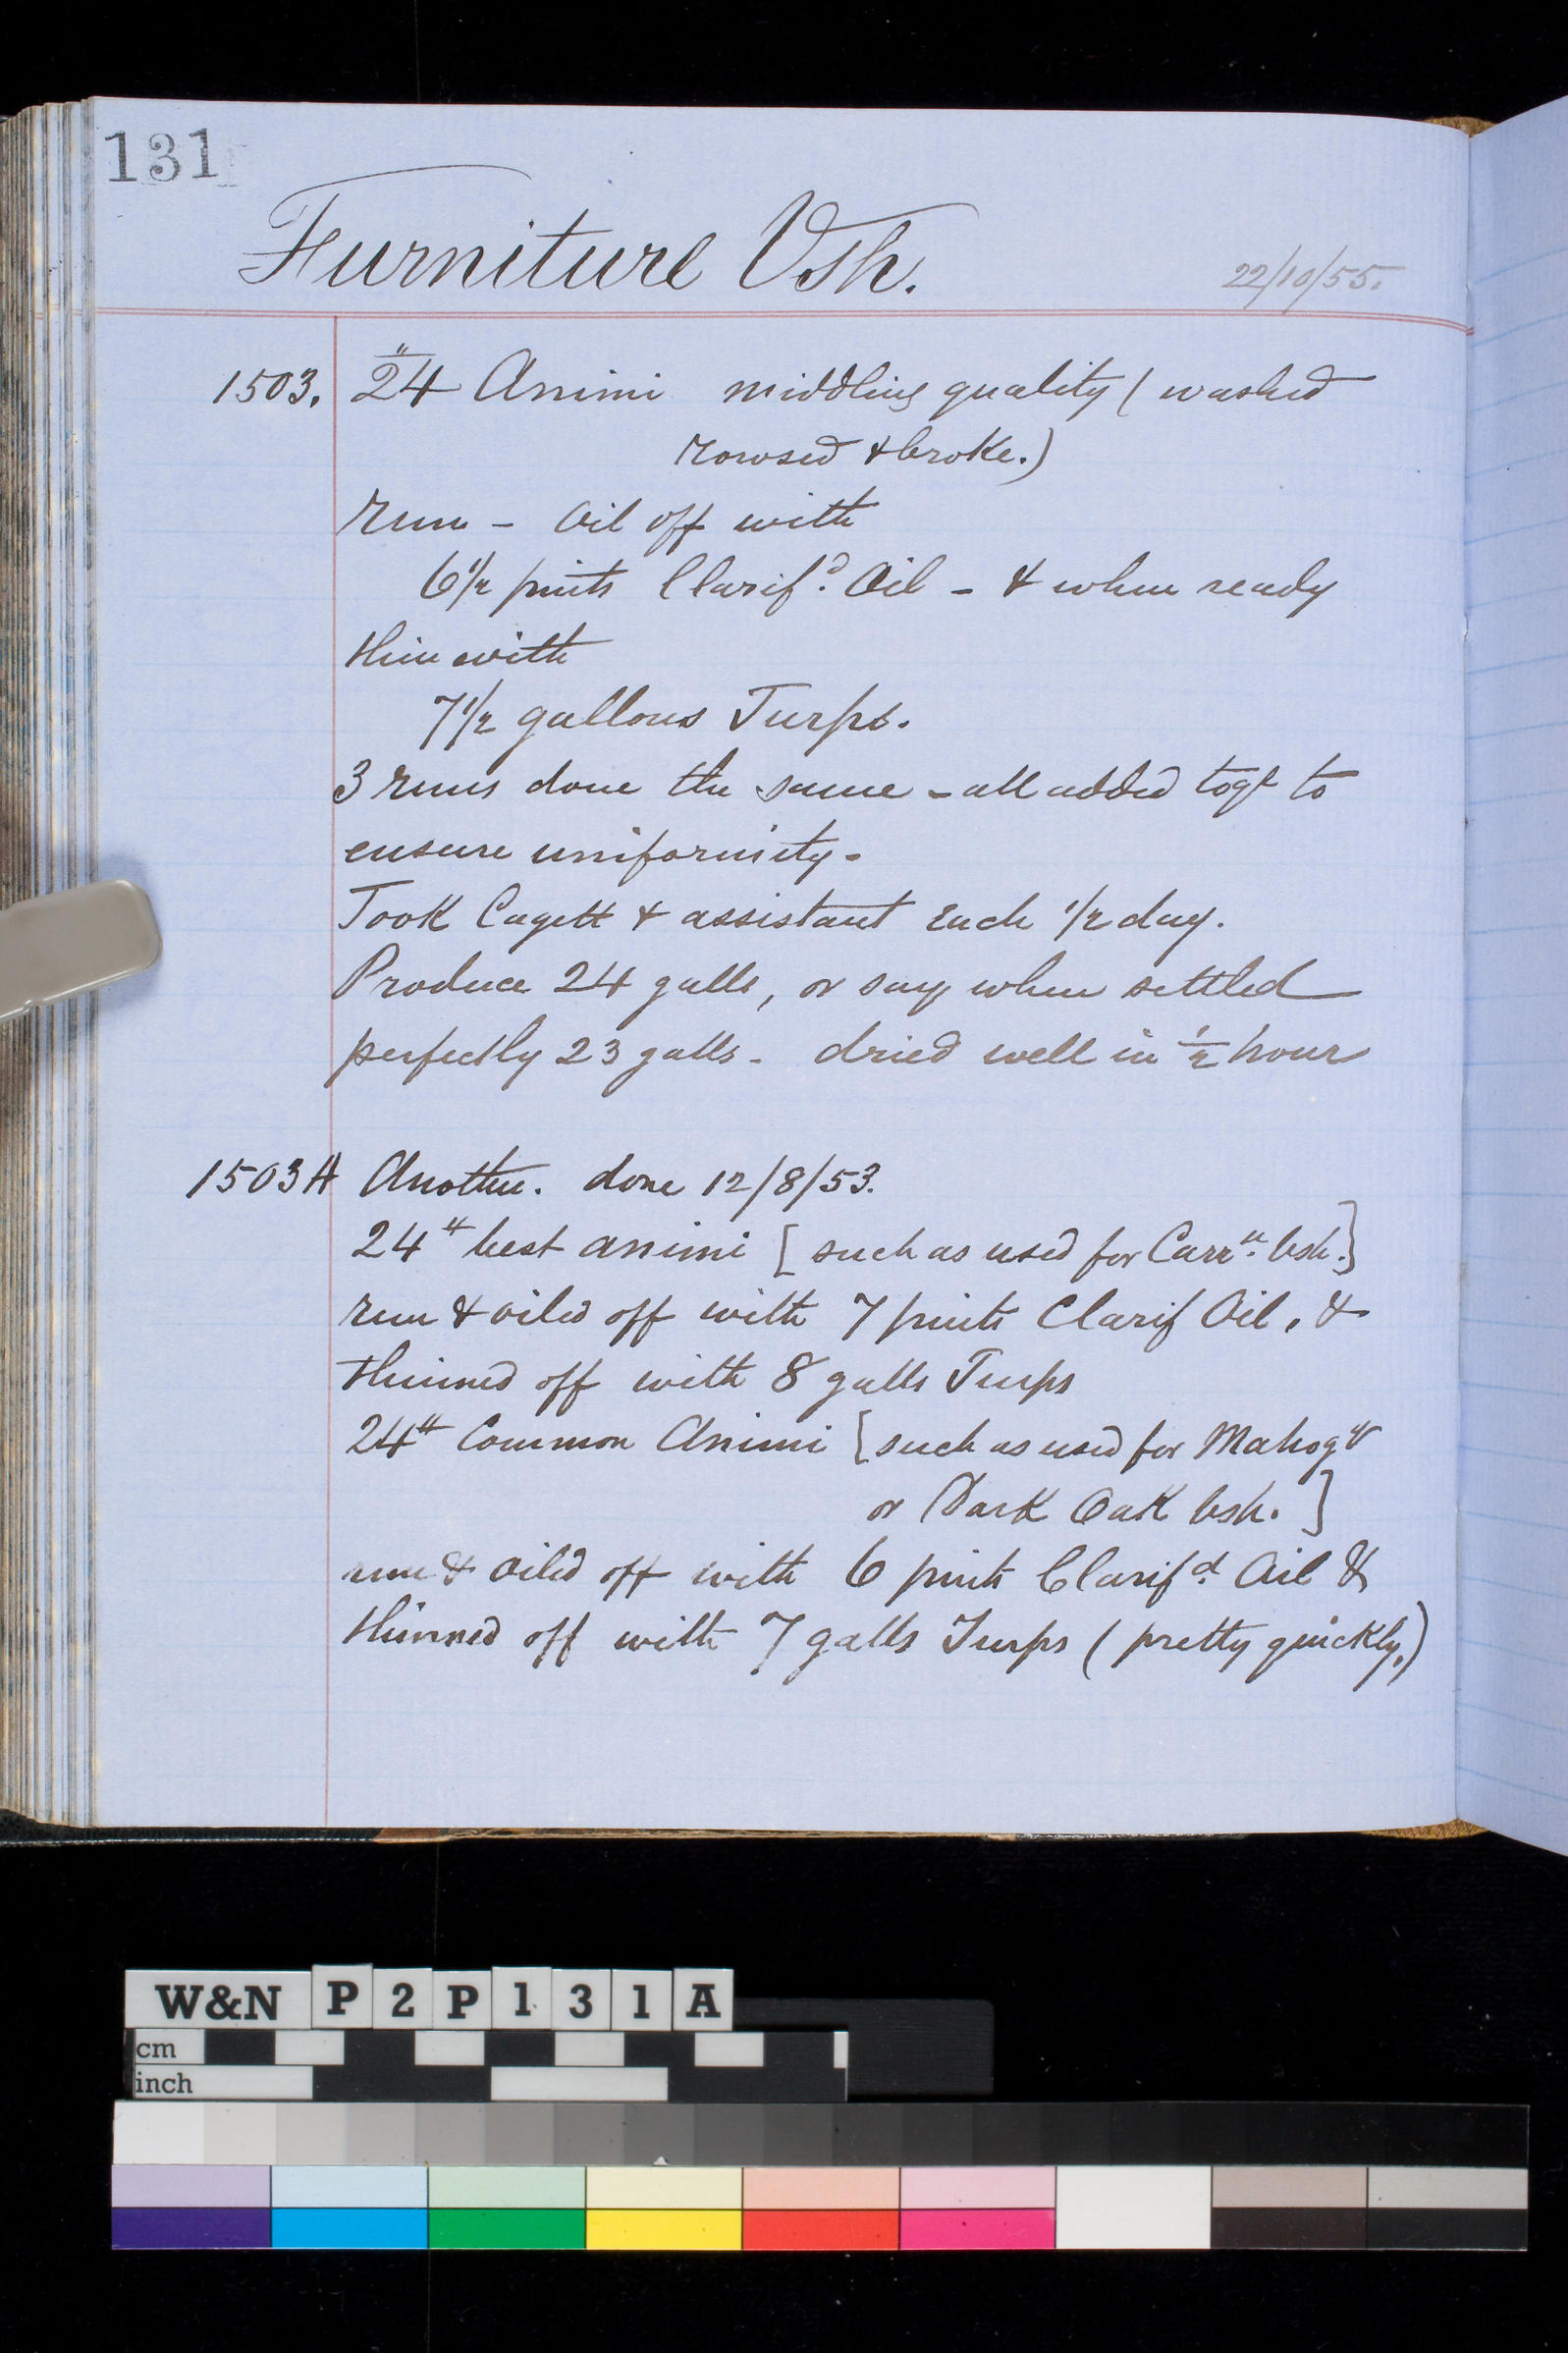 131
Furniture Vsh.
22/10/55.
1503. 24 " Animi middling quality (washed
rowsed & broke.)
run - oil off with
6 1/2 pints Clarif.d Oil - & when ready
thin with
7 1/2 gallons Turps.
3 runs done the same - all added togr to
ensure uniformity -
Took Cagett & assistant each 1/2 day.
Produce 24 galls, or say when settled
perfectly 23 galls - dried well in 1/2 hour
1503A Another. done 12/8/53.
24 " best animi [such as used for Carr.ge Vsh.]
run & oiled off with 7 pints Clarif Oil, &
thinned off with 8 galls Turps
24 " Common Animi [such as used for Mahogy
or Dark Oak Vsh.]
run & oiled off with 6 pints Clarif.d Oil &
thinned off with 7 galls Turps (pretty quickly.)
W&N P2P131A
cm
inch